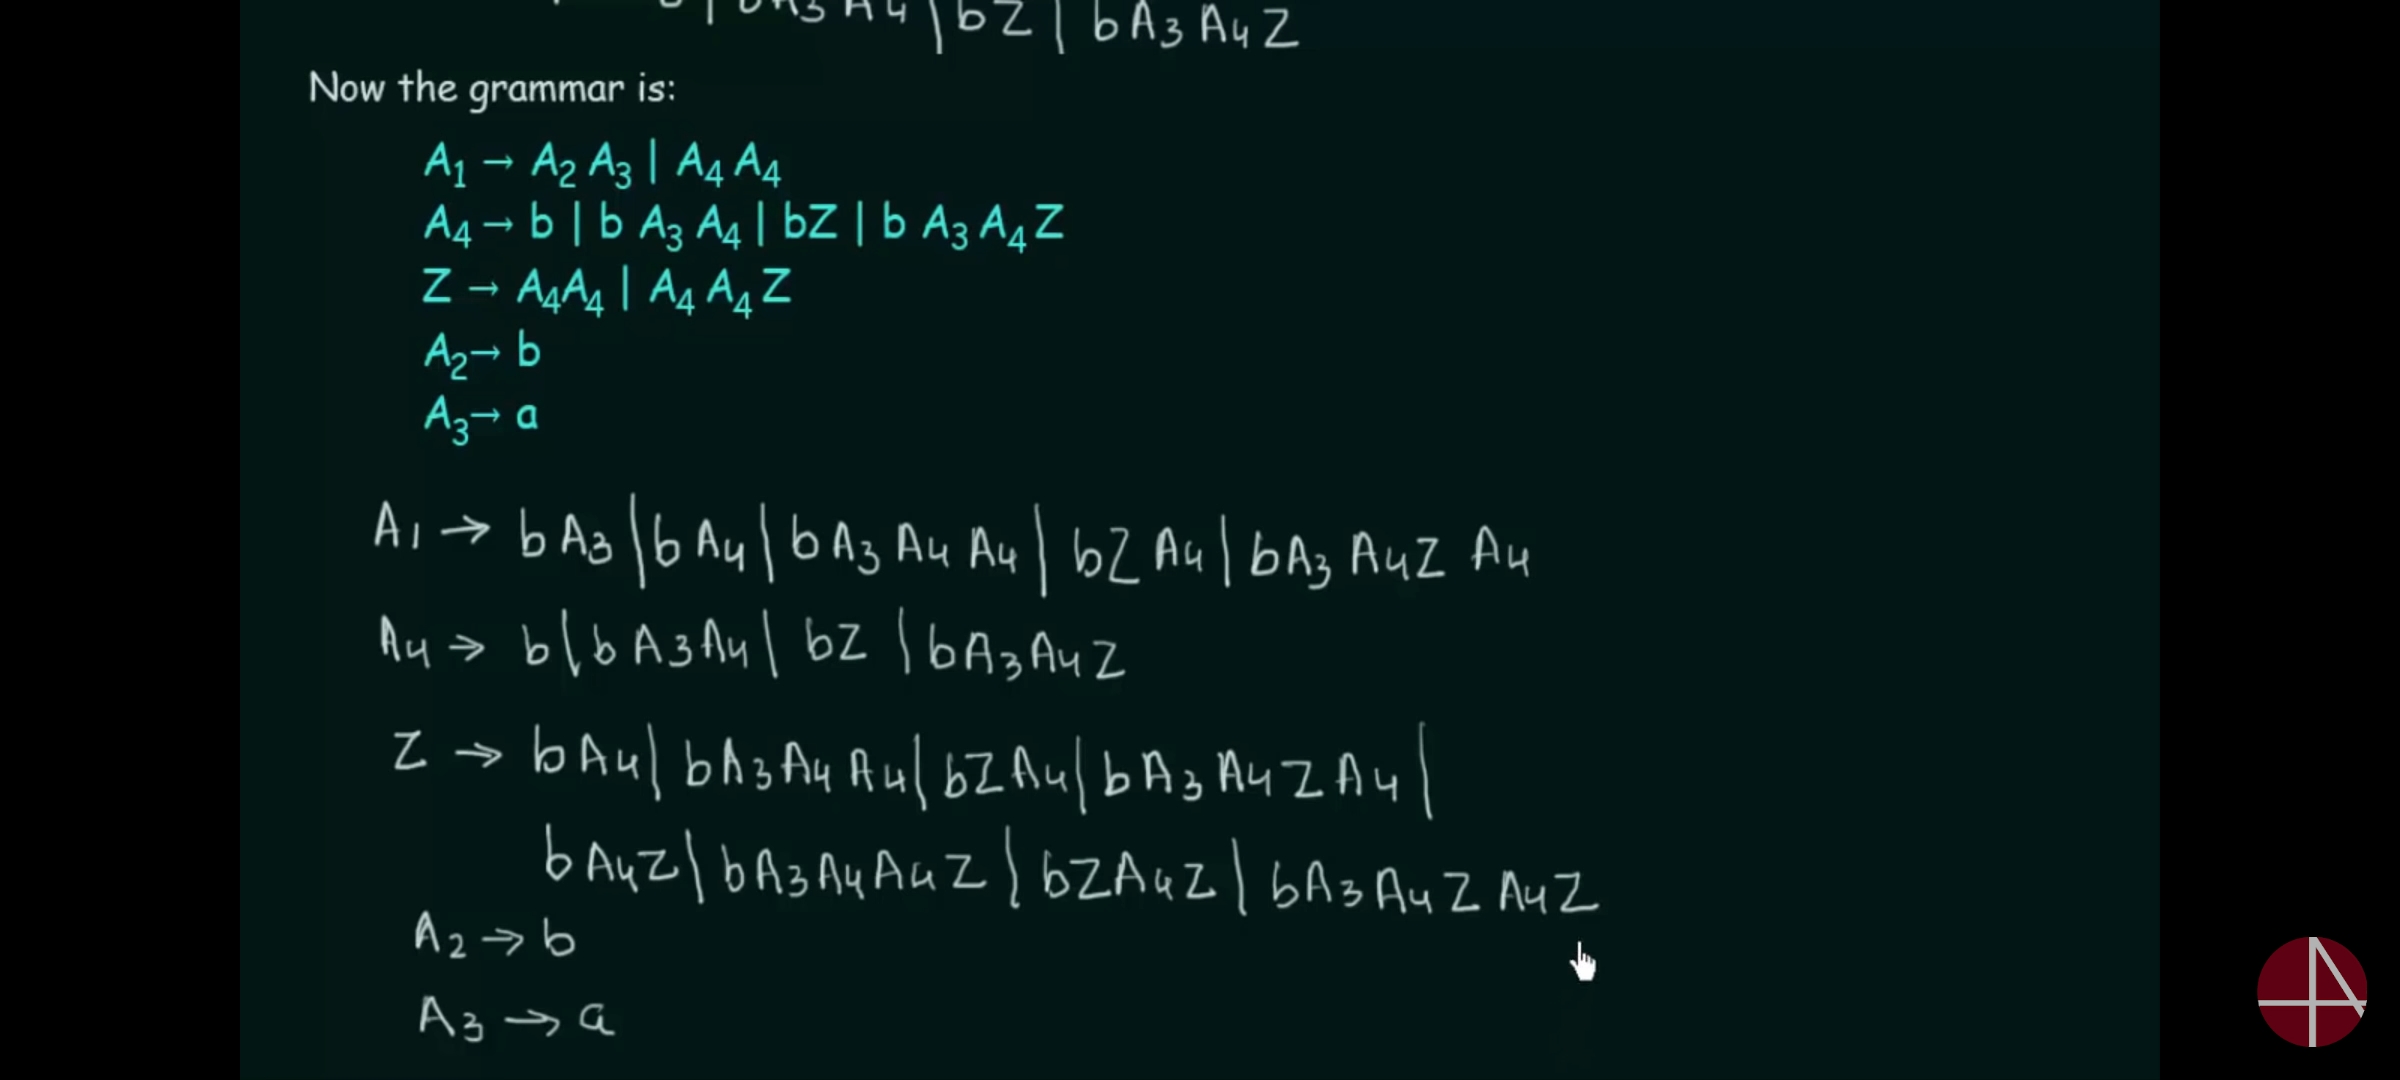 b A₃ A₄ | b Z | b A₃ A₄ Z
Now the grammar is:
A₁ → A₂ A₃ | A₄ A₄
A₄ → b | b A₃ A₄ | bZ | b A₃ A₄ Z
Z → A₄A₄ | A₄ A₄ Z
A₂ → b
A₃ → a
A₁ → b A₃ | b A₄ | b A₃ A₄ A₄ | b Z A₄ | b A₃ A₄ Z A₄
A₄ → b | b A₃ A₄ | b Z | b A₃ A₄ Z
Z → b A₄ | b A₃ A₄ A₄ | b Z A₄ | b A₃ A₄ Z A₄ |
b A₄ Z | b A₃ A₄ A₄ Z | b Z A₄ Z | b A₃ A₄ Z A₄ Z
A₂ → b
A₃ → a